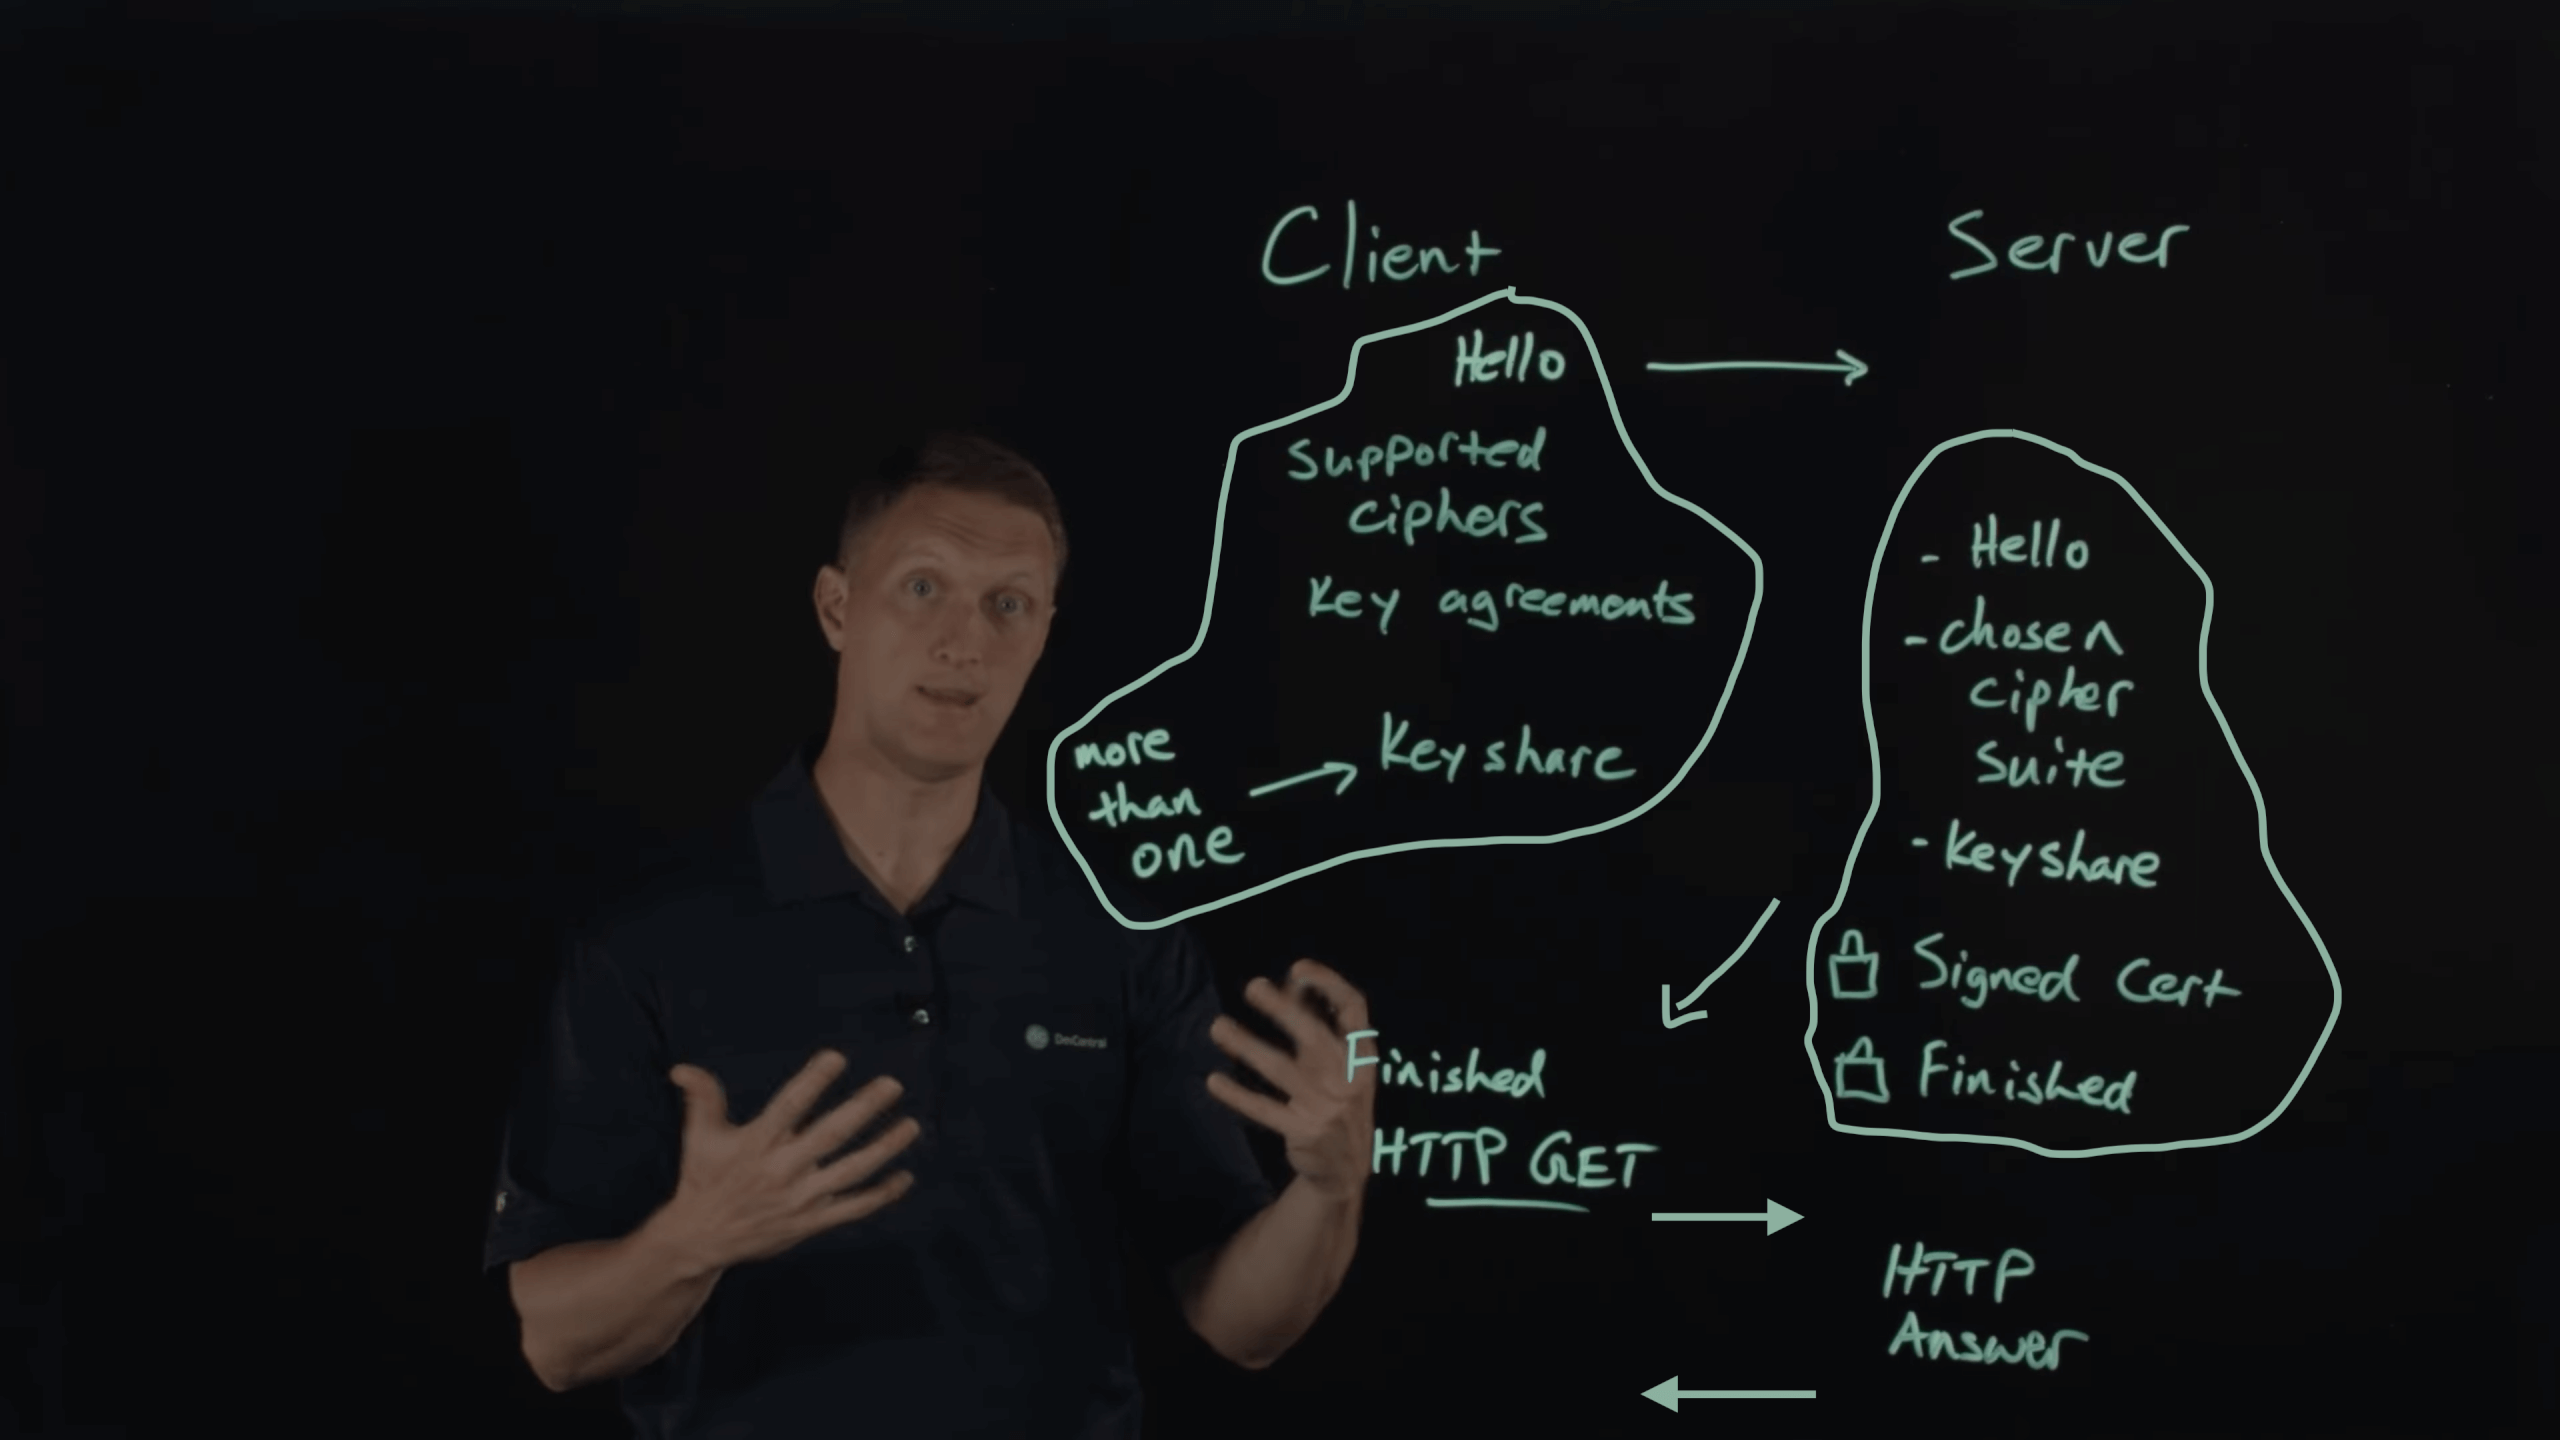 Client
Hello
Supported
ciphers
Key agreements
Key share
more
than
one
Server
- Hello
- chosen
cipher
suite
- Key share
Signed Cert
Finished
Finished
HTTP GET
HTTP
Answer
DevCentral